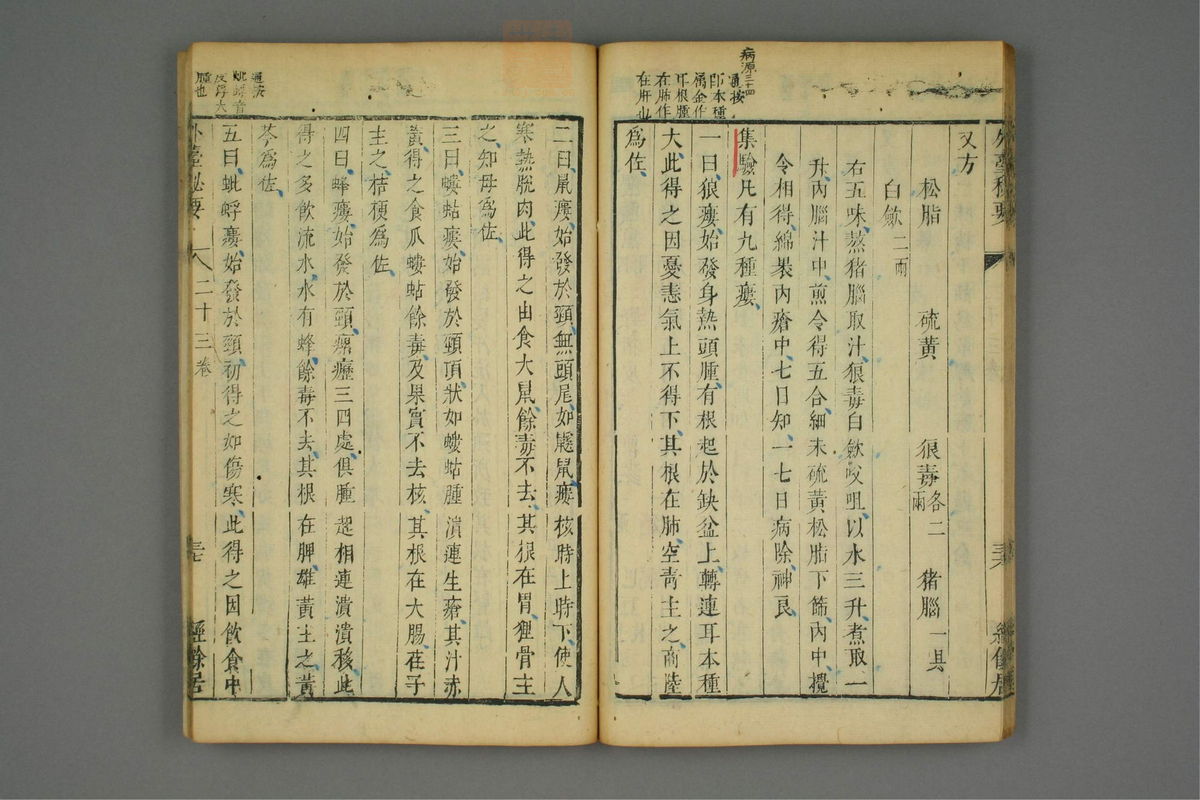 病源三十四
又方
松脂 硫黃 狠毒各二兩 猪腦一具
白歛二兩
右五味蒸猪腦取汁狠毒白歛㕮咀以水三升煮取一
升內腦汁中煎令得五合細末硫黃松脂下篩內中攪
令相得綿裹內瘡中七日知一七日病除神良
集驗凡有九種瘻
一曰狼瘻始發身熱頭腫有根起於缺盆上轉連耳本種
大此得之因憂恚氣上不得下其根在肺空靑主之商陸
爲佐
二曰鼠瘻始發於頸無頭尾如鼷鼠瘻核時上時下使人
寒熱脫肉此得之由食大鼠餘毒不去其根在胃狸骨主
之知母爲佐
三曰螻蛄瘻始發於頸項狀如螻蛄腫潰連生瘡其汁赤
黃得之食瓜螻蛄餘毒及果實不去核其根在大腸荏子
主之桔梗爲佐
四曰蜂瘻始發於頸瘰癧三四處俱腫起相連潰潰移此
得之多飲流水水有蜂餘毒不去其根在脾雄黃主之黃
芩爲佐
五曰蚍蜉瘻始發於頸初得之如傷寒此得之因飲食中
外臺秘要 二十三卷 經餘居